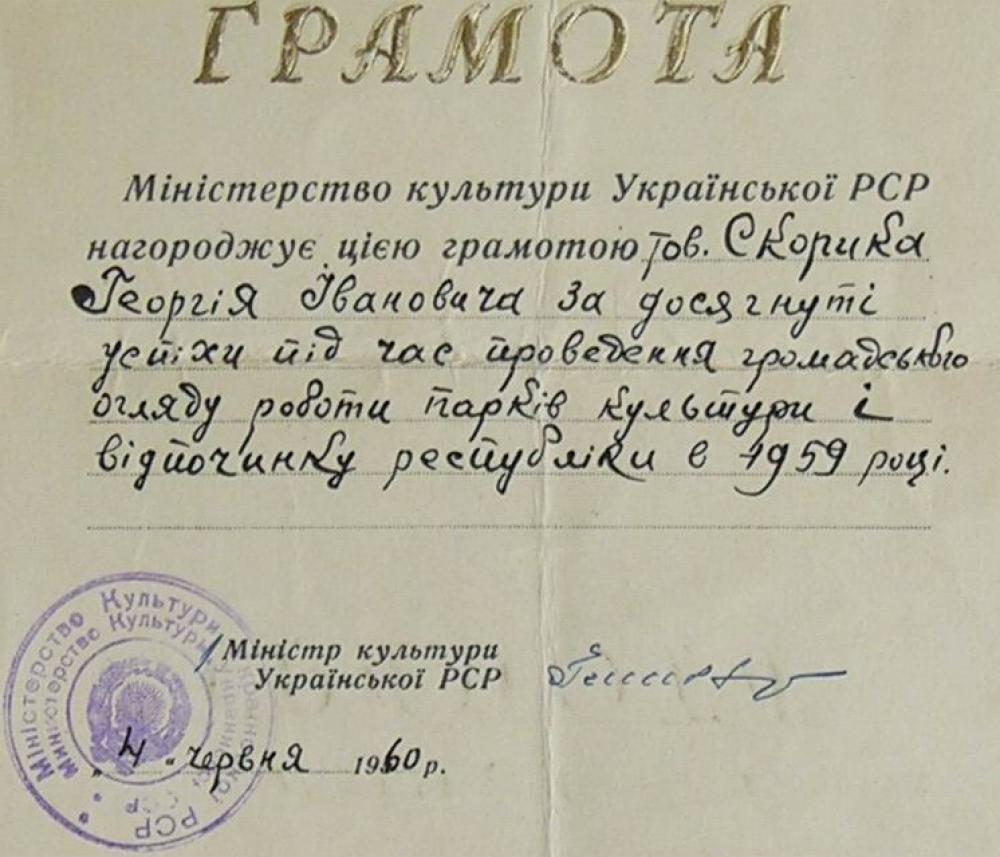 ГРАМОТА
Міністерство культури Української РСР
нагороджує цією грамотою тов. Скорика
Георгія Івановича за досягнуті
успіхи під час проведення громадського
огляду роботи парків культури і
відпочинку республіки в 1959 році.
Міністр культури
Української РСР
"4" червня 1960 р.
Міністерство Культури Української РСР
Министерство Культуры Украинской ССР